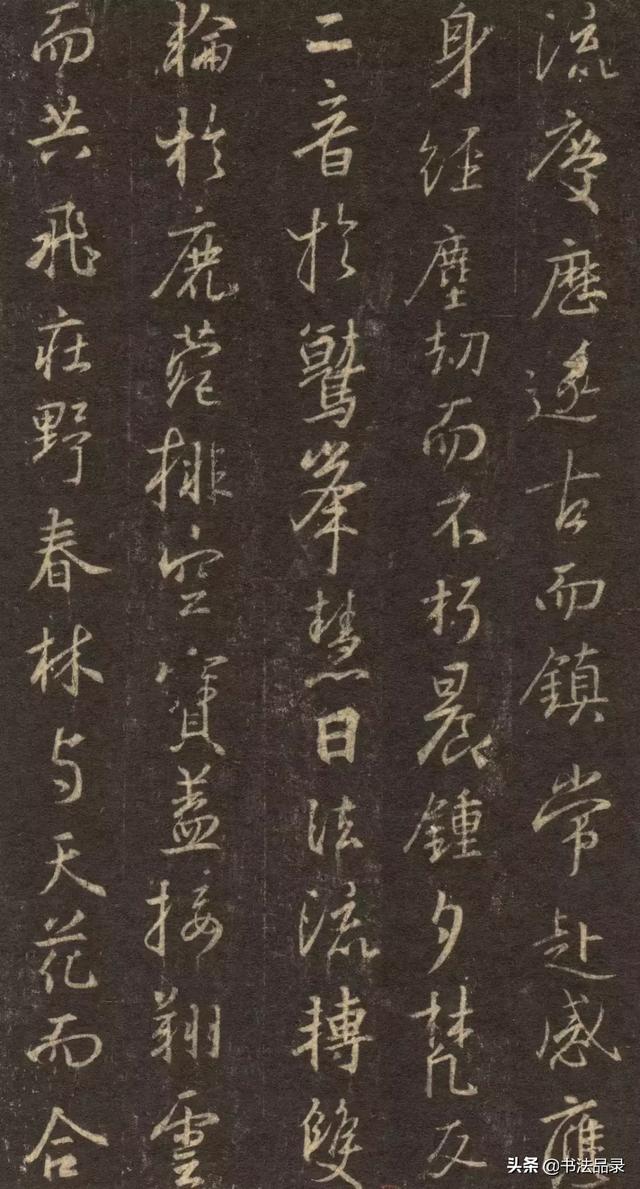 流慶歷遂古而鎮常赴感應
身經塵劫而不朽晨鍾夕梵交
二音於鷲峯慧日法流轉雙
輪於鹿菀排空寶盖接翔雲
而共飛莊野春林与天花而合
头条 @书法品录